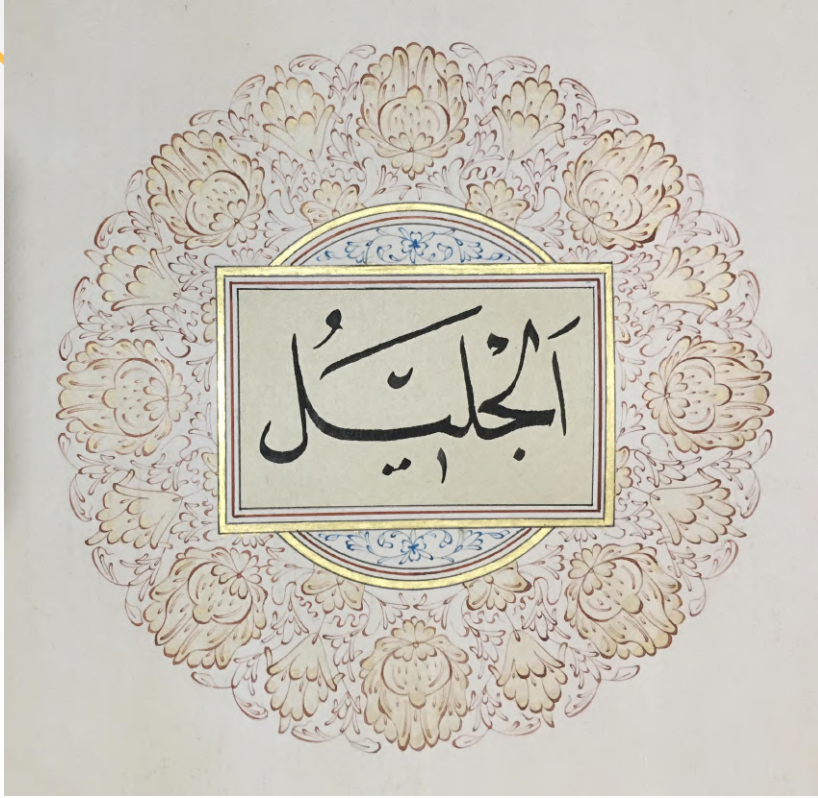 اَلْجَلِيلُ